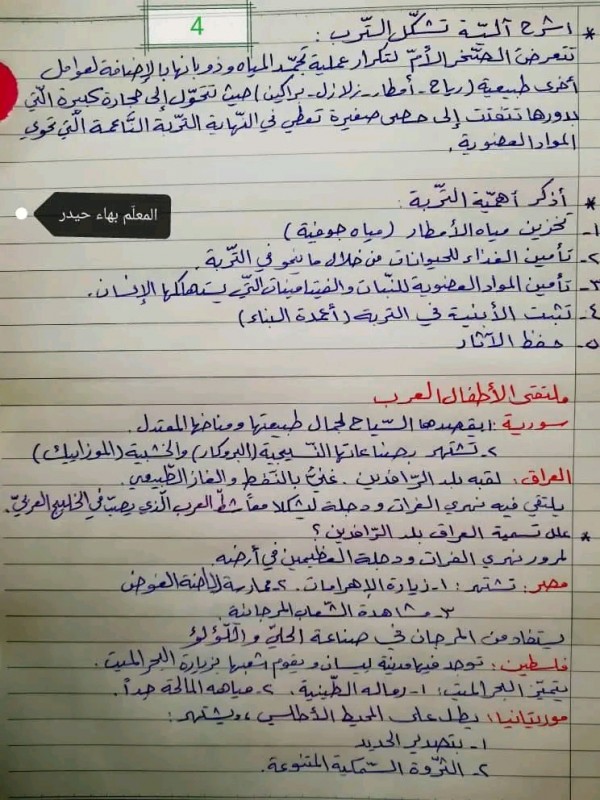 4
* اشرح آلية تشكّل التّرب :
تتعرض الصّخر الأمّ لتكرار عملية تجمّد المياه وذوبانها بالإضافة لعوامل
أخرى طبيعية (رياح - أمطار - زلازل - براكين) حيث تتحوّل إلى حجارة كبيرة الّتي
بدورها تتفتت إلى حصى صغيرة تعطي في النّهاية التّربة النّاعمة الّتي تحوي
المواد العضوية .
* أذكر أهميّة التّربة :
المعلّم بهاء حيدر
١- تخزين مياه الأمطار (مياه جوفية)
٢- تأمين الغذاء للحيوانات من خلال ما ينمو في التّربة .
٣- تأمين المواد العضوية للنّبات والفيتامينات الّتي يستهلكها الإنسان.
٤- تثبت الأبنية في التربة (أعمدة البناء)
٥- حفظ الآثار
ملتقى الأطفال العرب
سورية : ١- يقصدها السّياح لجمال طبيعتها ومناخها المعتدل .
٢- تشتهر بصناعاتها النّسيجية (البروكار) والخشبية (الموزاييك)
العراق : لقبه بلد الرّافدين . غنيّ بالنّفط والغاز الطّبيعي .
يلتقي فيه نهري الفرات ودجلة ليشكلا معاً شطّ العرب الّذي يصبّ في الخليج العربيّ.
* علل تسمية العراق بلد الرّافدين ؟
لمرور نهري الفرات ودجلة العظيمين في أرضه.
مصر : تشتهر : ١- زيارة الأهرامات . ٢- ممارسة رياضة الغوص
٣- مشاهدة الشّعاب المرجانية
يستفاد من المرجان في صناعة الحليّ واللّؤلؤ
فلسطين : توجد فيها مدينة بيسان ويقوم شعبها بزيارة البحر الميت .
يتميّز البحر الميت : ١- رماله الطّينية . ٢- مياهه المالحة جداً .
موريتانيا : يطل على المحيط الأطلسي ، ويشتهر :
١- بتصدير الحديد
٢- الثّروة السّمكية المتنوعة.